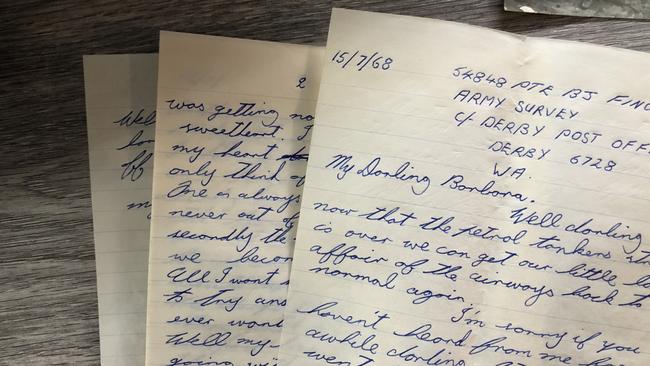 15/7/68
54848 PTE BJ FINU
ARMY SURVEY
C/- DERBY POST OFF
DERBY 6728
WA.
My Darling Barbara.
Well darling
now that the petrol tankers
is over we can get our little lo
affair of the airways back to
normal again.
I'm sorry if you
haven't heard from me for
awhile darling
went
2
was getting no
sweetheart. I
my heart
only think of
One is always
never out of
secondly the
we becom
All I want
to try and
ever want
Well my
going wi
Wel
lo
off
my